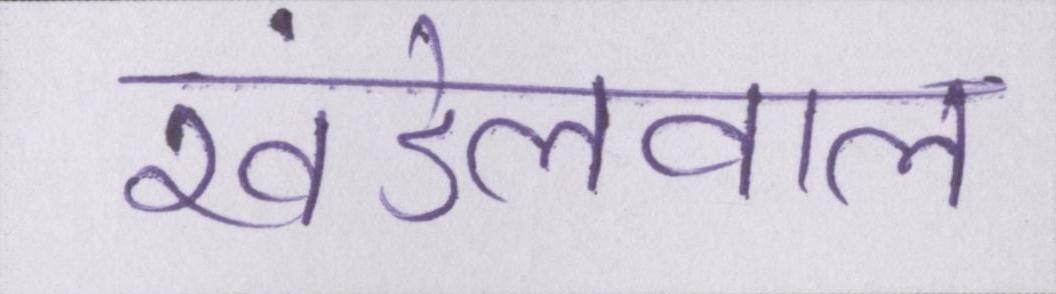 खंडेलवाल